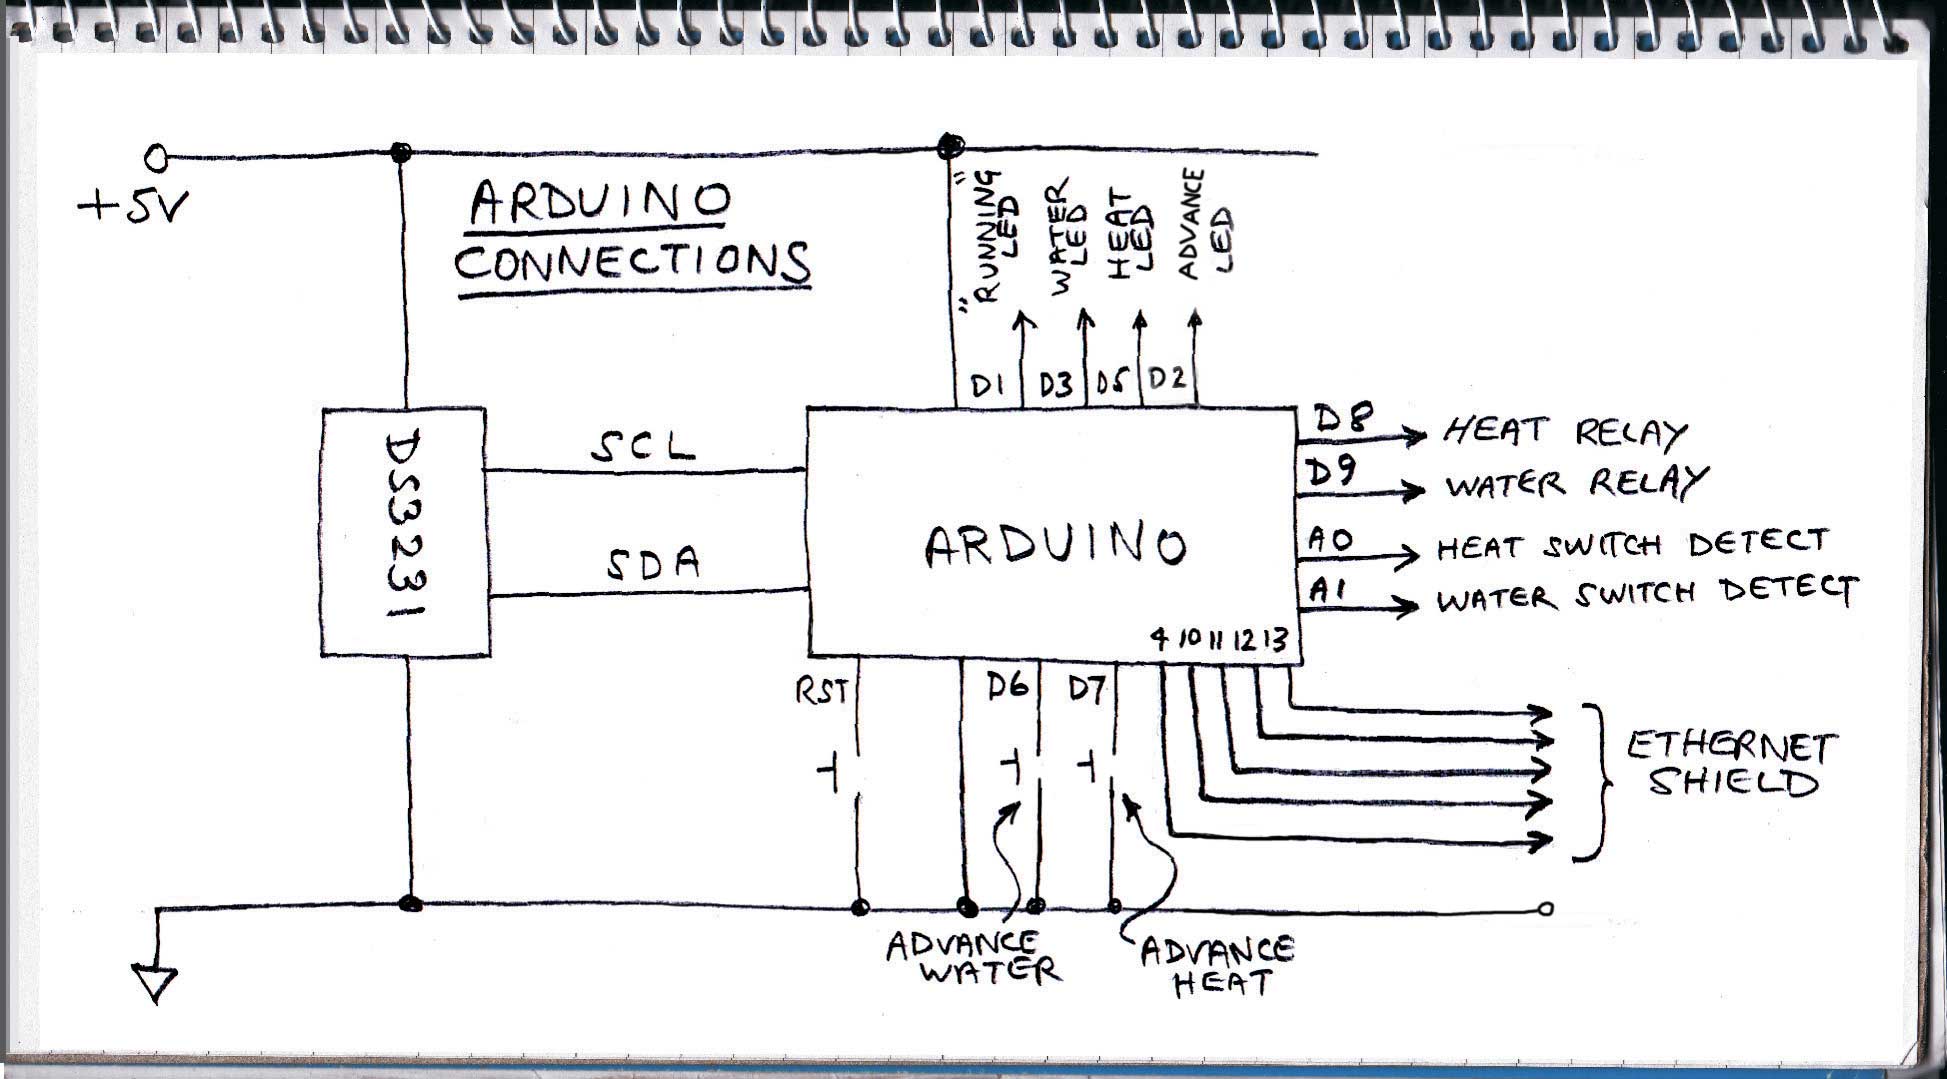 +5V
ARDUINO
CONNECTIONS
"RUNNING"
LED
WATER
LED
HEAT
LED
ADVANCE
LED
D1
D3
D5
D2
DS3231
SCL
SDA
ARDUINO
D8
HEAT RELAY
D9
WATER RELAY
A0
HEAT SWITCH DETECT
A1
WATER SWITCH DETECT
4 10 11 12 13
RST
D6
D7
ETHERNET
SHIELD
ADVANCE
WATER
ADVANCE
HEAT